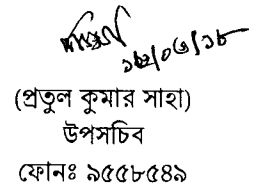 ১৯/০৩/১৮
(প্রতুল কুমার সাহা)
উপসচিব
ফোনঃ ৯৫৫৮৫৪৯